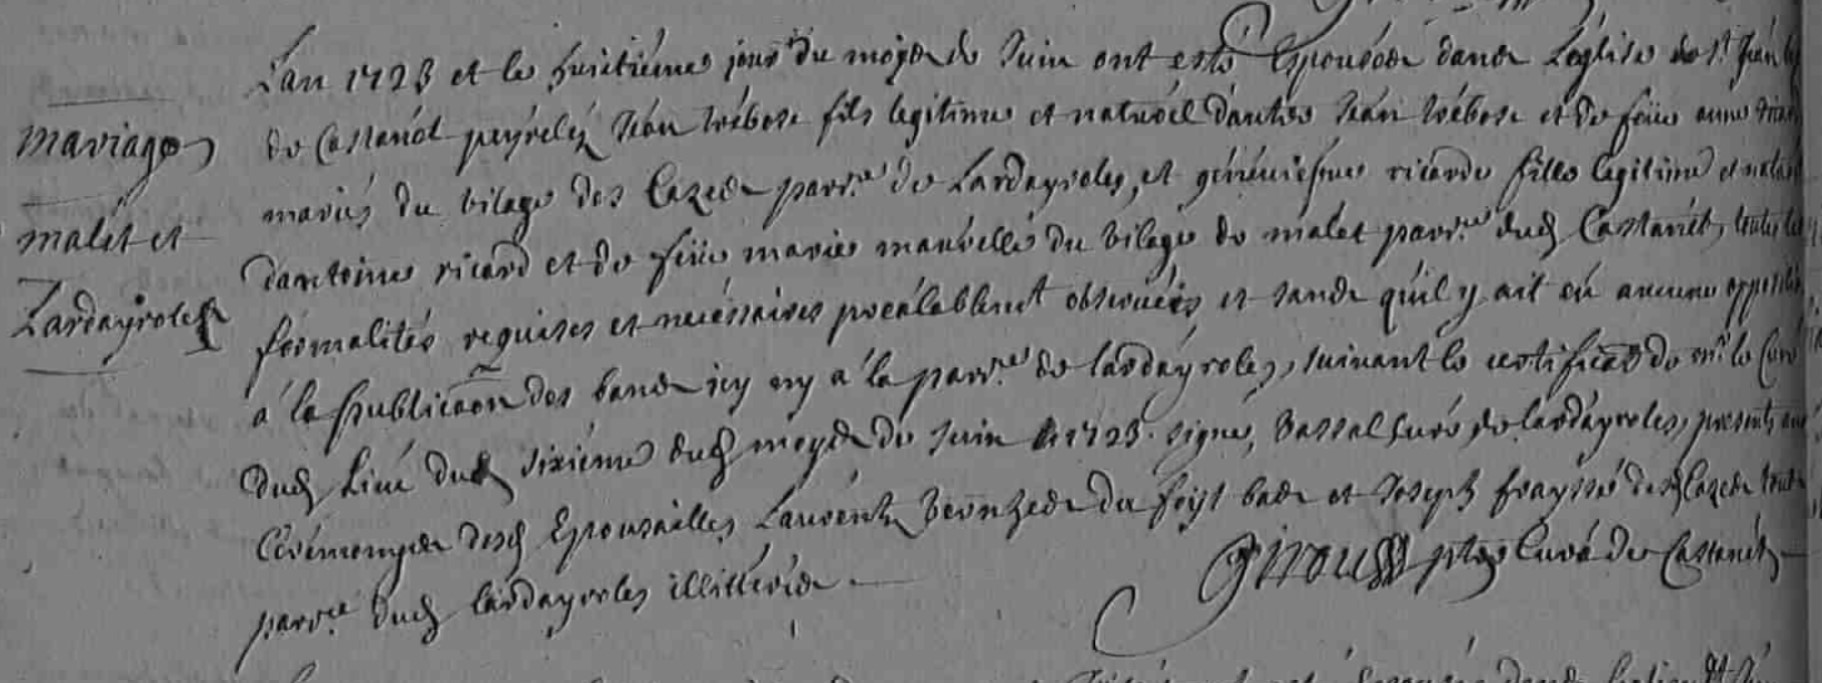 L'an 1723 et le huictiéme jour du moys de Juin ont esté Espousés dans L'église de St Jean
mariage
de Castanét peyreléz Jean trébosc fils legitime et naturél d'autre Jean trébosc et de feüe anne
mariés du vilage des Cazes parr.e de Lardayroles, et généuiefve ricarde fille legitime et
malét et
d'antoine ricard et de feüe marie manuelle du vilage de malét parr.e dud Castanét, toutes les
Lardayroles
formalités requises et nécéssaires préalablemt obseruées et sans qu'il y ait eû aucune opposition
a la publicaon des bans icy ny a la parr.e de lardayroles, suiuant le certificat de mr le Curé
dud Lieu du sixiéme dud moys de Juin 1723. signé, Vassal Curé de lardayroles, presents aux
Cérémonyes desd Epousailles, Laurént Vernhes du bas et Joseph frayssé desd Cazes
parr.e dud lardayroles illitérés
ptre Curé de Castanét